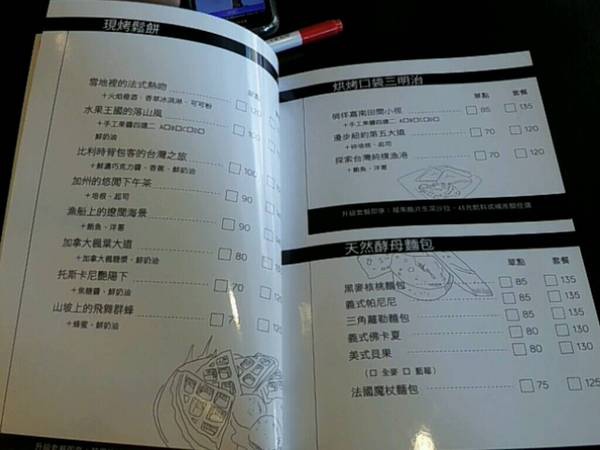 現烤鬆餅
單點
雪地裡的法式熱吻 □ 120
+火焰橙酒、香草冰淇淋、可可粉
水果王國的落山風 □ 110
+手工果醬四選二 A□B□C□D□
鮮奶油
比利時背包客的台灣之旅 □ 100
+鮮濃巧克力醬、香蕉、鮮奶油
加州的悠閒下午茶 □ 90
+培根、起司
漁船上的遼闊海景 □ 90
+鮪魚、洋蔥
加拿大楓葉大道 □ 80
+加拿大楓糖漿、鮮奶油
托斯卡尼艷陽下 □ 70
+焦糖醬、鮮奶油
山坡上的飛舞群蜂 □ 70
+蜂蜜、鮮奶油
烘烤口袋三明治
單點 套餐
徜徉嘉南田間小徑 □ 85 □ 135
+手工果醬四選二 A□B□C□D□
漫步紐約第五大道 □ 70 □ 120
+碎培根、起司
探索台灣純樸漁港 □ 70 □ 120
+鮪魚、洋蔥
天然酵母麵包
單點 套餐
黑麥核桃麵包 □ 85 □ 135
義式帕尼尼 □ 85 □ 135
三角蘿勒麵包 □ 85 □ 135
義式佛卡夏 □ 80 □ 130
美式貝果 □ 80 □ 130
(□ 全麥 □ 藍莓)
法國魔杖麵包 □ 75 □ 125